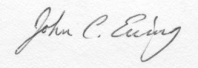 John C. Ewing